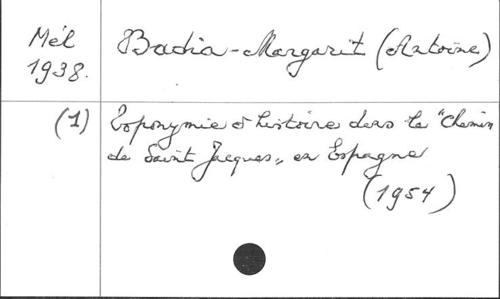 Mél
1938.
Badia-Margarit (Antoine)
(1) Toponymie et histoire dans le "Chemin
de Saint Jacques„ en Espagne
(1954)